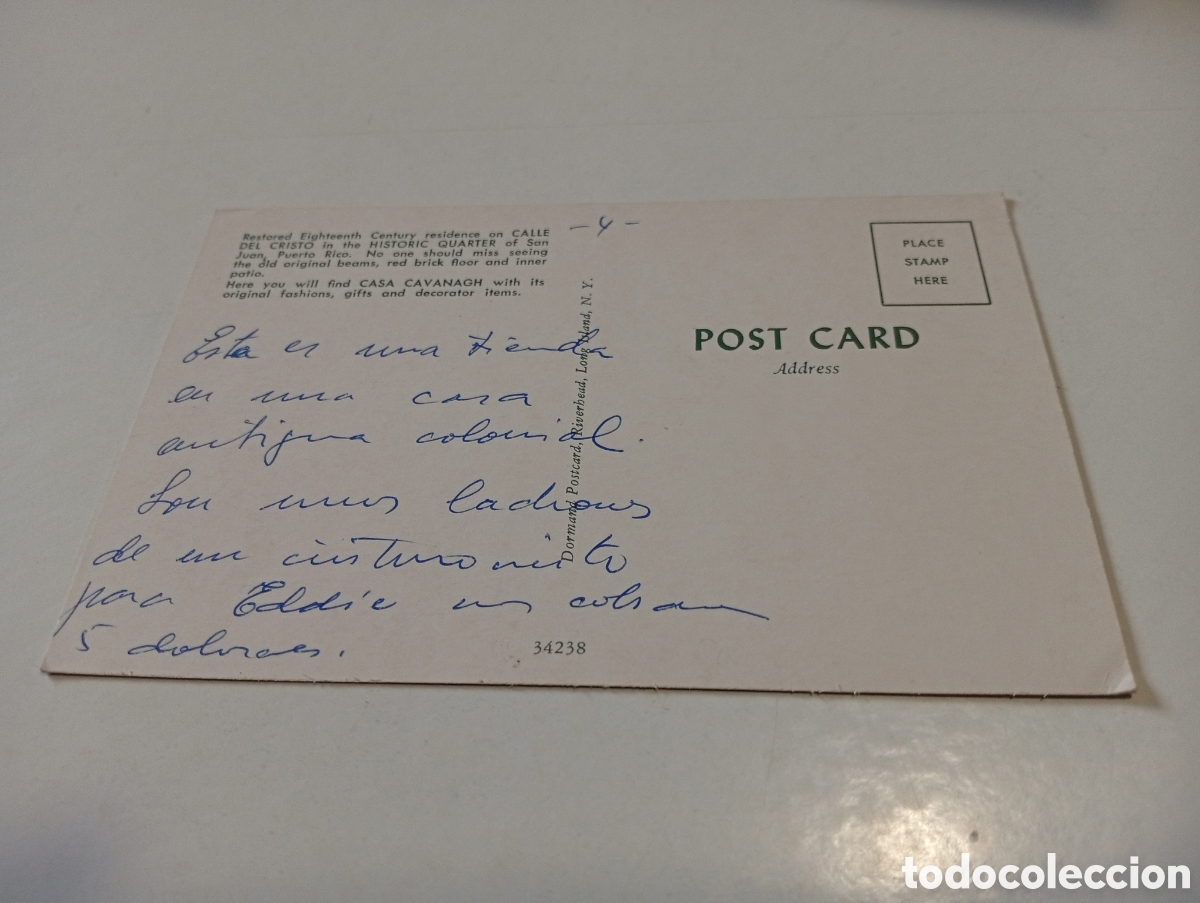 Restored Eighteenth Century residence on CALLE
DEL CRISTO in the HISTORIC QUARTER of San
Juan, Puerto Rico. No one should miss seeing
the old original beams, red brick floor and inner
patio.
Here you will find CASA CAVANAGH with its
original fashions, gifts and decorator items.
-4-
Esta es una tienda
en una casa
antigua colonial.
Son unos ladrones
de un cinturoncito
para Eddie nos cobraron
5 dolares.
Dormand Postcard, Riverhead, Long Island, N. Y.
34238
PLACE
STAMP
HERE
POST CARD
Address
todocoleccion